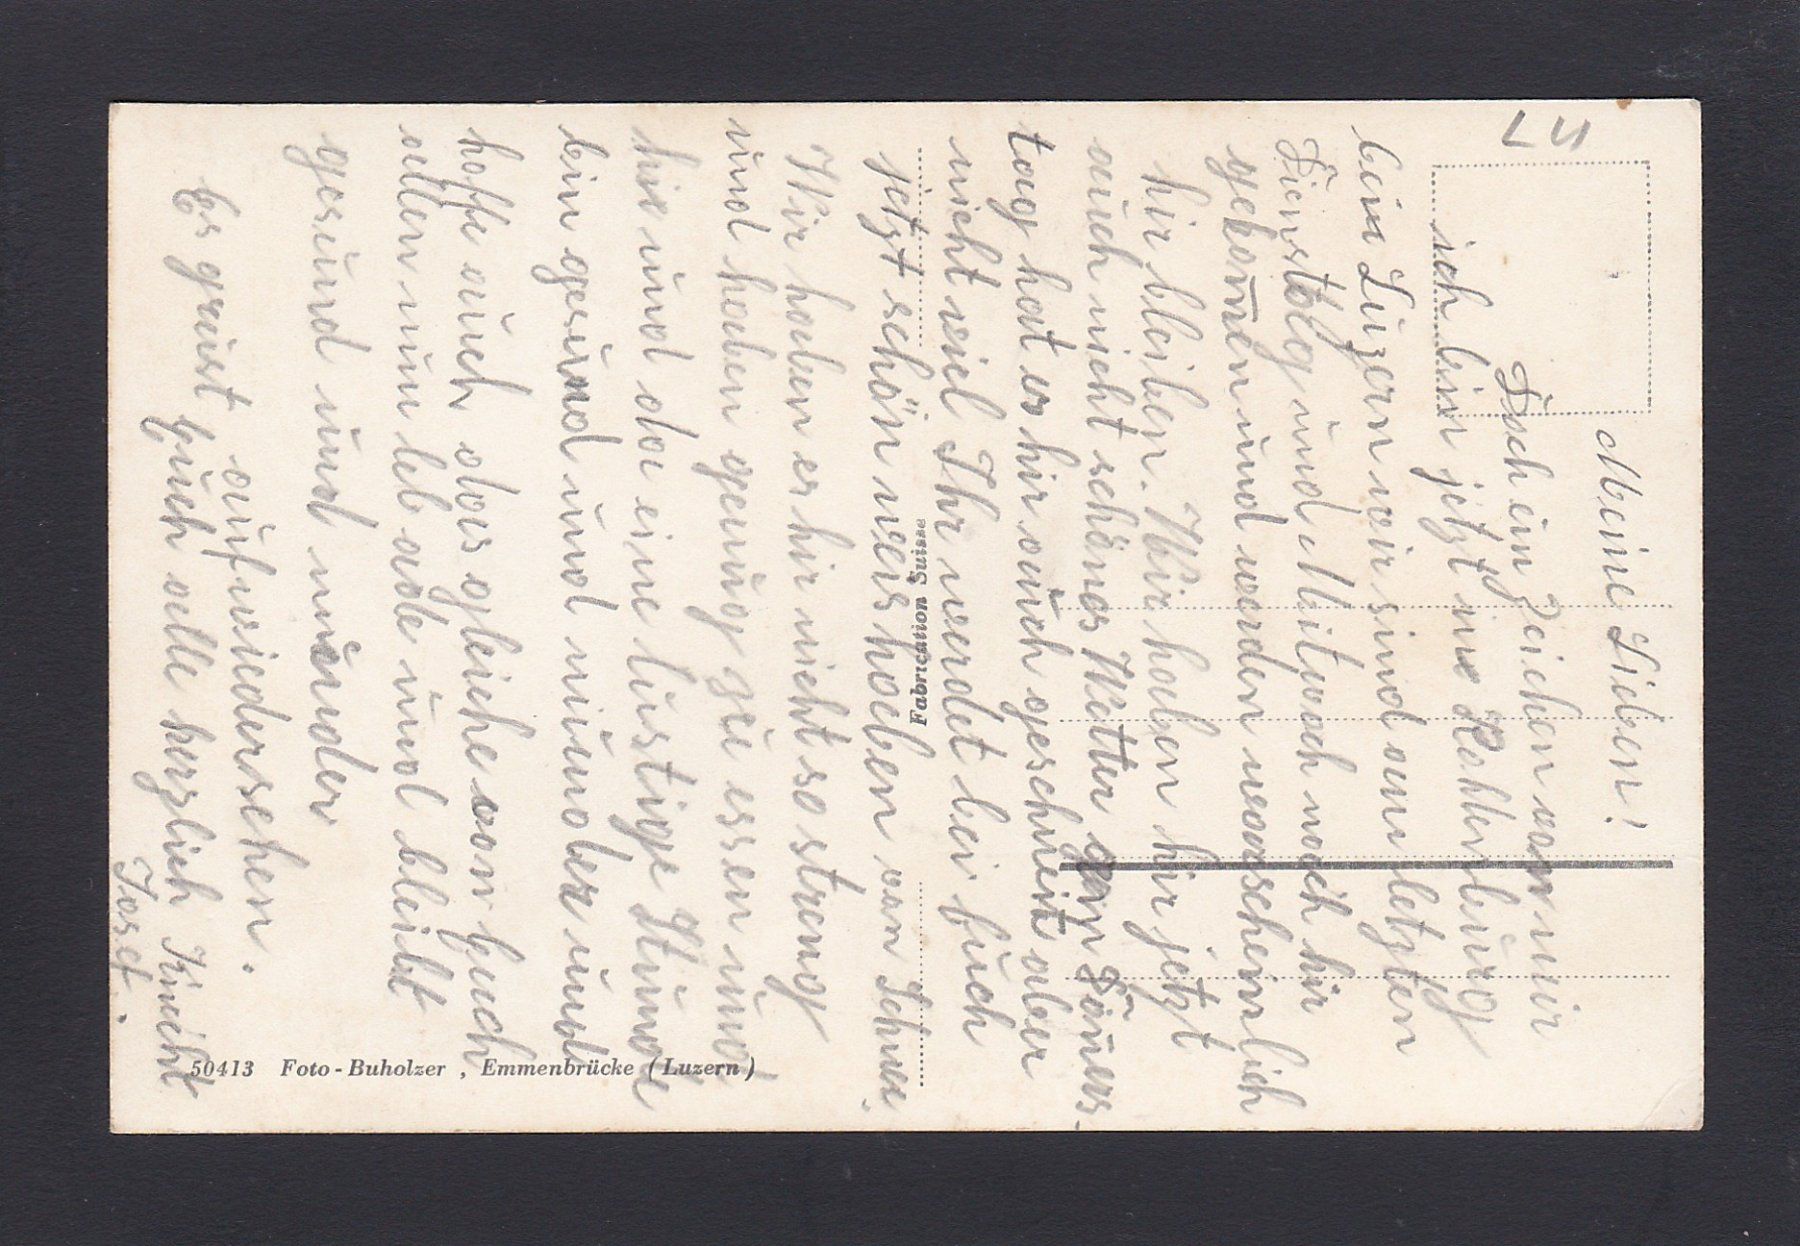 LU
Meine Lieben!
Doch ein Zeichen von mir
ich bin jetzt ins Rohtenburg
bein Luzern wir sind am letzten
Dienstag und Mitwoch noch hir
gekom̄en und werden warscheinlich
hir bleiben. Wir haben hir jetzt
auch nicht schönes Wetter gar Dōners-
tag hat es hir auch geschneit aber
nicht viel Ihr werdet bei Euch
jetzt schön weis haben von Schnee.
Wir haben es hir nicht so streng
und haben genug zu essen und
hie und da eine lustige Stunde
bin gesund und munder und
hoffe auch das gleiche von Euch
allen nun leb ade und bleibt
gesund und munder
auf wiedersehen.
Es grüst Euch alle herzlich
Josef.
Fabrication Suisse
50413 Foto-Buholzer, Emmenbrücke (Luzern)